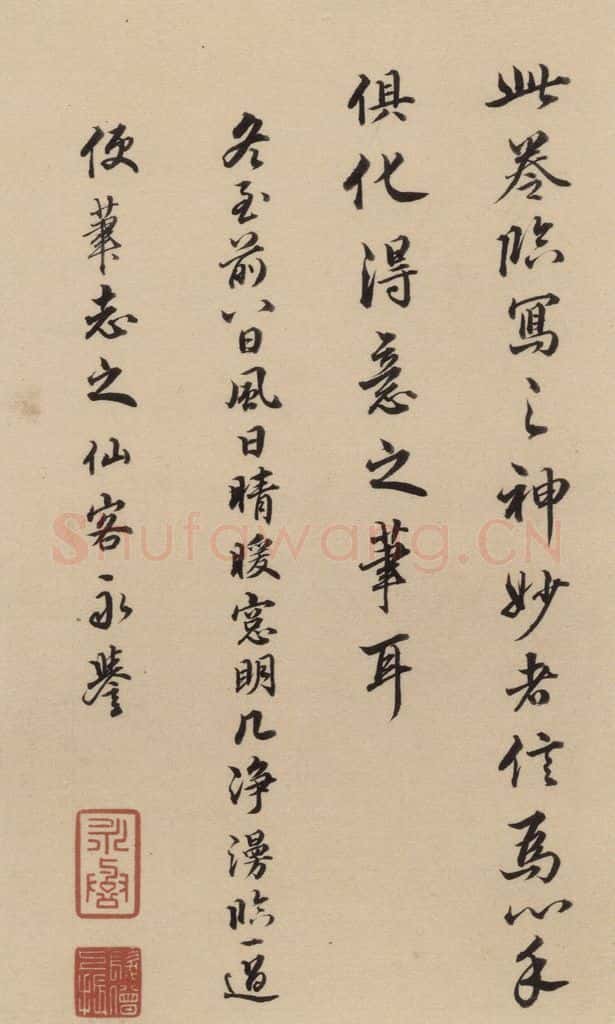 此卷临寫之神妙者信為心手
俱化得意之筆耳
冬至前八日風日晴暖窓明几净漫临一過
便筆志之仙客永譽
Shufawang.CN
永譽